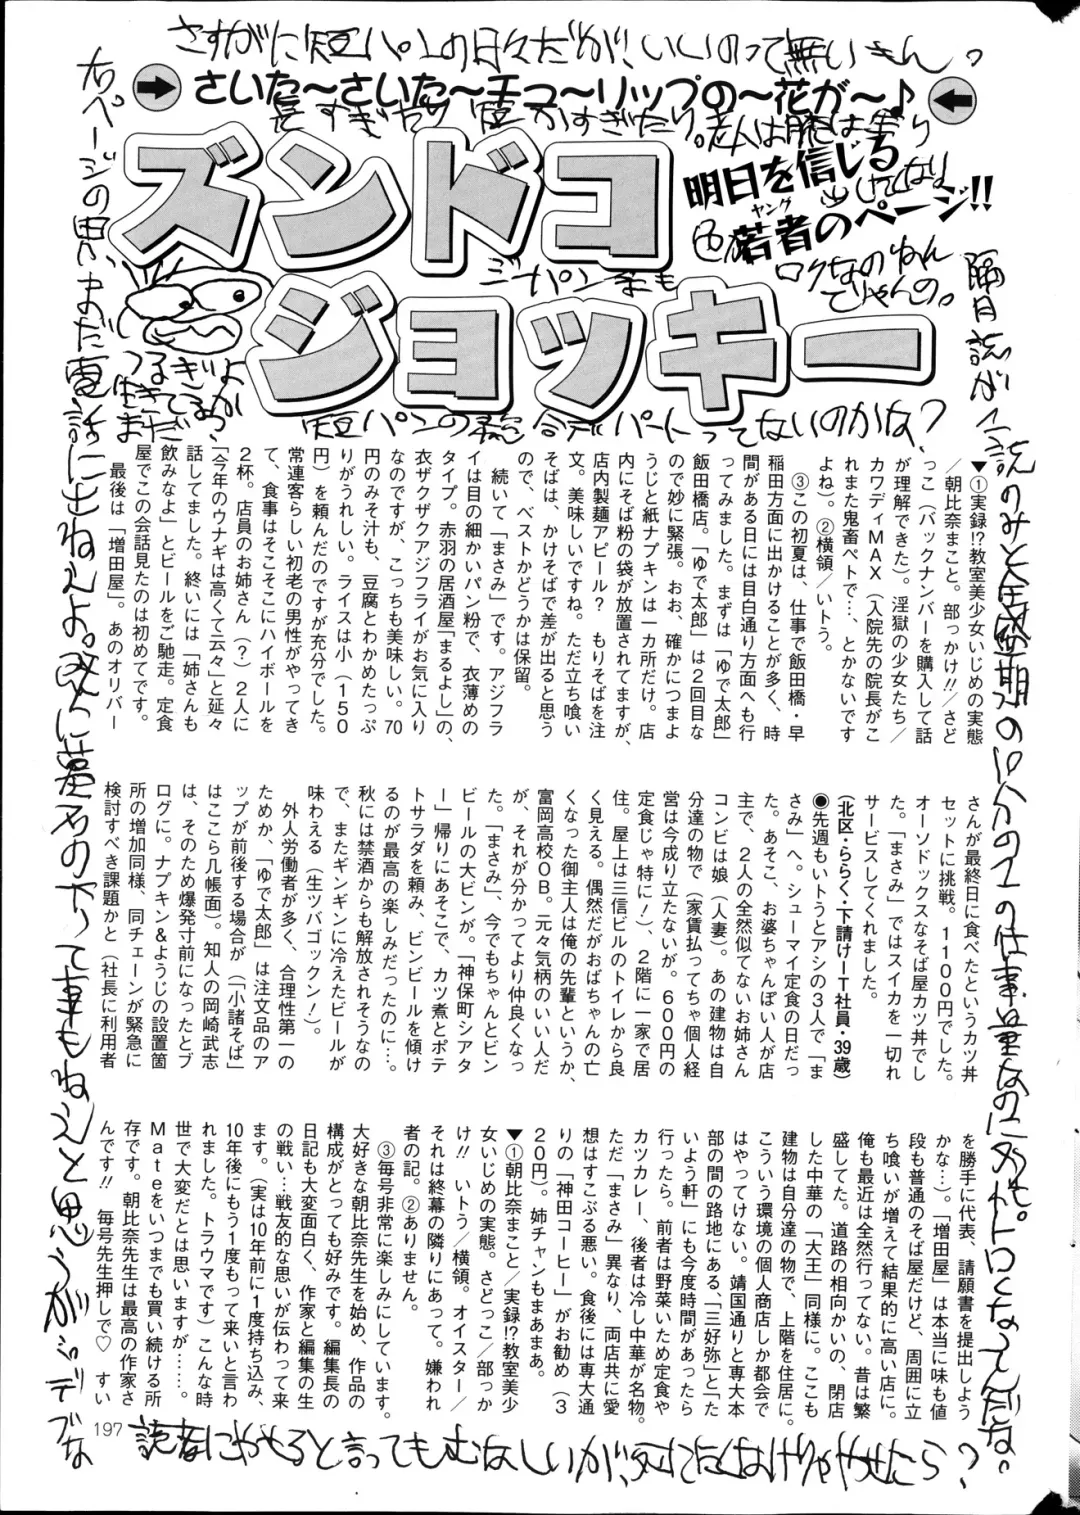 さすがに短パンの日々だが、いいのって無いもん。
さいた〜さいた〜チュ〜リップの〜花が〜♪
長すぎたり短かすぎたり。老人は腕は実り
ズンドコ
ジョッキー
明日を信じる
若者のページ!!
ヤング
ロクなのねん
ジーパンまも
短パンの総合デパートってないのかな?
生きてるか
まだ
▼①実録!?教室美少女いじめの実態
/朝比奈まこと。部っかけ!!/さど
っこ(バックナンバーを購入して話
が理解できた)。淫獄の少女たち/
カワディMAX(入院先の院長がこ
れまた鬼畜ペトで…、とかないです
よね)。②横領/いトう。
③この初夏は、仕事で飯田橋・早
稲田方面に出かけることが多く、時
間がある日には目白通り方面へも行
ってみました。まずは「ゆで太郎」
飯田橋店。「ゆで太郎」は2回目な
ので妙に緊張。おお、確かにつまよ
うじと紙ナプキンは一カ所だけ。店
内にそば粉の袋が放置されてますが、
店内製麺アピール? もりそばを注
文。美味しいですね。ただ立ち喰い
そばは、かけそばで差が出ると思う
ので、ベストかどうかは保留。
続いて「まさみ」です。アジフラ
イは目の細かいパン粉で、衣薄めの
タイプ。赤羽の居酒屋「まるよし」の、
衣ザクザクアジフライがお気に入り
なのですが、こっちも美味しい。70
円のみそ汁も、豆腐とわかめたっぷ
りがうれしい。ライスは小(150
円)を頼んだのですが充分でした。
常連客らしい初老の男性がやってき
て、食事はそこそこにハイボールを
2杯。店員のお姉さん(?)2人に
「今年のウナギは高くて云々」と延々
話してました。終いには「姉さんも
飲みなよ」とビールをご馳走。定食
屋でこの会話見たのは初めてです。
最後は「増田屋」。あのオリバー
さんが最終日に食べたというカツ丼
セットに挑戦。1100円でした。
オーソドックスなそば屋カツ丼でし
た。「まさみ」ではスイカを一切れ
サービスしてくれました。
(北区・ららく・下請けIT社員・39歳)
●先週もいトうとアシの3人で「ま
さみ」へ。シューマイ定食の日だっ
た。あそこ、お婆ちゃんぽい人が店
主で、2人の全然似てないお姉さん
コンビは娘(人妻)。あの建物は自
分達の物で(家賃払ってちゃ個人経
営は今成り立たないが。600円の
定食じゃ特に!)、2階に一家で居
住。屋上は三信ビルのトイレから良
く見える。偶然だがおばちゃんの亡
くなった御主人は俺の先輩というか、
富岡高校OB。元々気柄のいい人だ
が、それが分かってより仲良くなっ
た。「まさみ」、今でもちゃんとビン
ビールの大ビンが。「神保町シアタ
ー」帰りにあそこで、カツ煮とポテ
トサラダを頼み、ビンビールを傾け
るのが最高の楽しみだったのに…。
秋には禁酒からも解放されそうなの
で、またギンギンに冷えたビールが
味わえる(生ツバゴックン!)。
外人労働者が多く、合理性第一の
ためか、「ゆで太郎」は注文品のア
ップが前後する場合が(「小諸そば」
はここら几帳面)。知人の岡崎武志
は、そのため爆発寸前になったとブ
ログに。ナプキン&ようじの設置箇
所の増加同様、同チェーンが緊急に
検討すべき課題かと(社長に利用者
を勝手に代表、請願書を提出しよう
かな…)。「増田屋」は本当に味も値
段も普通のそば屋だけど、周囲に立
ち喰いが増えて結果的に高い店に。
俺も最近は全然行ってない。昔は繁
盛してた。道路の相向かいの、閉店
した中華の「大王」同様に。ここも
建物は自分達の物で、上階を住居に。
こういう環境の個人商店しか都会で
はやってけない。靖国通りと専大本
部の間の路地にある、「三好弥」と「た
いよう軒」にも今度時間があったら
行ったら。前者は野菜いため定食や
カツカレー、後者は冷し中華が名物。
ただ「まさみ」異なり、両店共に愛
想はすこぶる悪い。食後には専大通
りの「神田コーヒー」がお勧め(3
20円)。姉チャンもまあまあ。
▼①朝比奈まこと/実録!?教室美少
女いじめの実態。さどっこ/部っか
け!! いトう/横領。オイスター/
それは終幕の隣りにあって。嫌われ
者の記。②ありません。
③毎号非常に楽しみにしています。
大好きな朝比奈先生を始め、作品の
構成がとっても好みです。編集長の
日記も大変面白く、作家と編集の生
の戦い…戦友的な思いが伝わって来
ます。(実は10年前に1度持ち込み、
10年後にもう1度もって来いと言わ
れました。トラウマです)こんな時
世で大変だとは思いますが……。
Mateをいつまでも買い続ける所
存です。朝比奈先生は最高の作家さ
んです!! 毎号先生押しで♡ すい
197
右ページの男、まだ電話に出ねんよ。既に墓石の下って事もねえと思うがジョデブな
隔月誌が1誌のみと全盛期の10分の1の仕事量なのに外トロくなってだな。
読者にやせろと言ってもむなしいが、立てたくなけりゃやせたら?